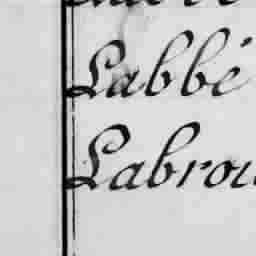 Labbé
Labrou